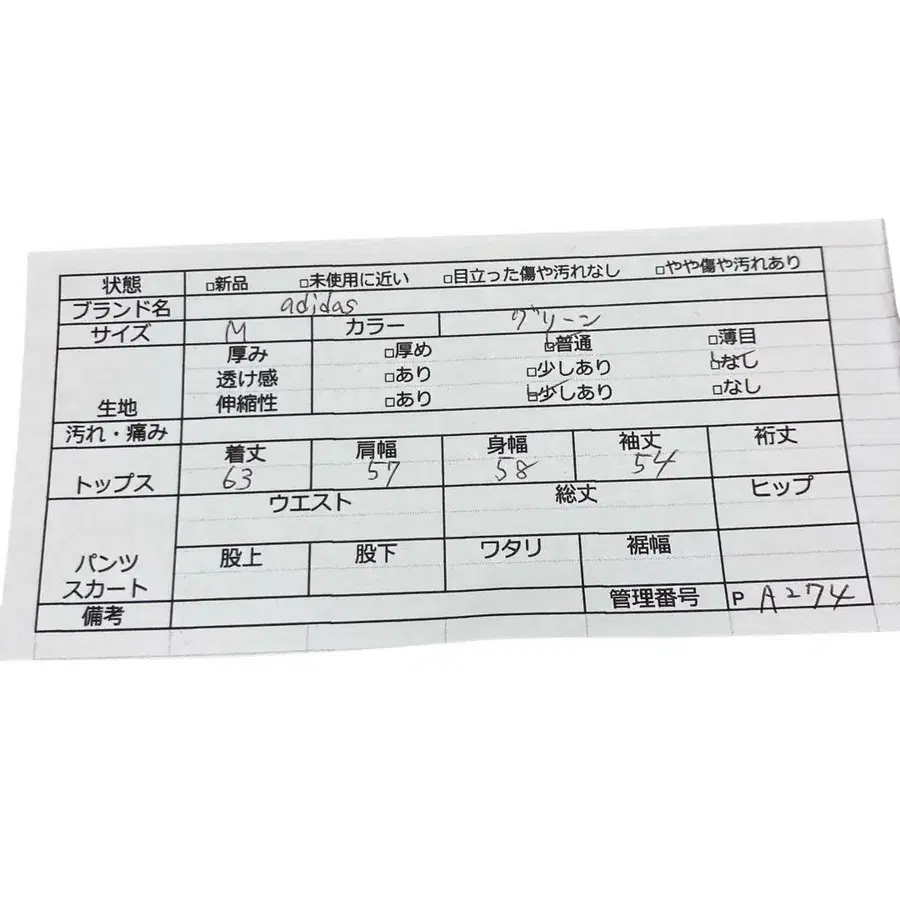 状態 □新品 □未使用に近い □目立った傷や汚れなし □やや傷や汚れあり
ブランド名 adidas
サイズ M カラー グリーン
厚み □厚め ☑普通 □薄目
透け感 □あり □少しあり ☑なし
生地 伸縮性 □あり ☑少しあり □なし
汚れ・痛み
着丈 肩幅 身幅 袖丈 裄丈
トップス 63 57 58 54
ウエスト 総丈 ヒップ
股上 股下 ワタリ 裾幅
パンツ
スカート
備考 管理番号 P A274